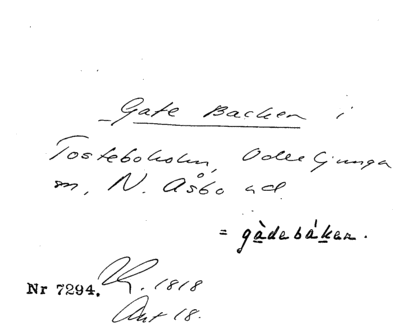 Gate Backen i
Tosteboholm, Oderljunga
sn, N. Åsbo hd.
= gàdebákan.
Nr 7294. 1818
Ant 18.